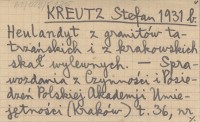 KREUTZ Stefan 1931 b.
Heulandyt z granitów ta-
trzańskich i z krakowskich
skał wylewnych — Spra-
wozdania z Czynności i Posie-
dzeń Polskiej Akademji Umie-
jętności (Kraków) t. 36, nr